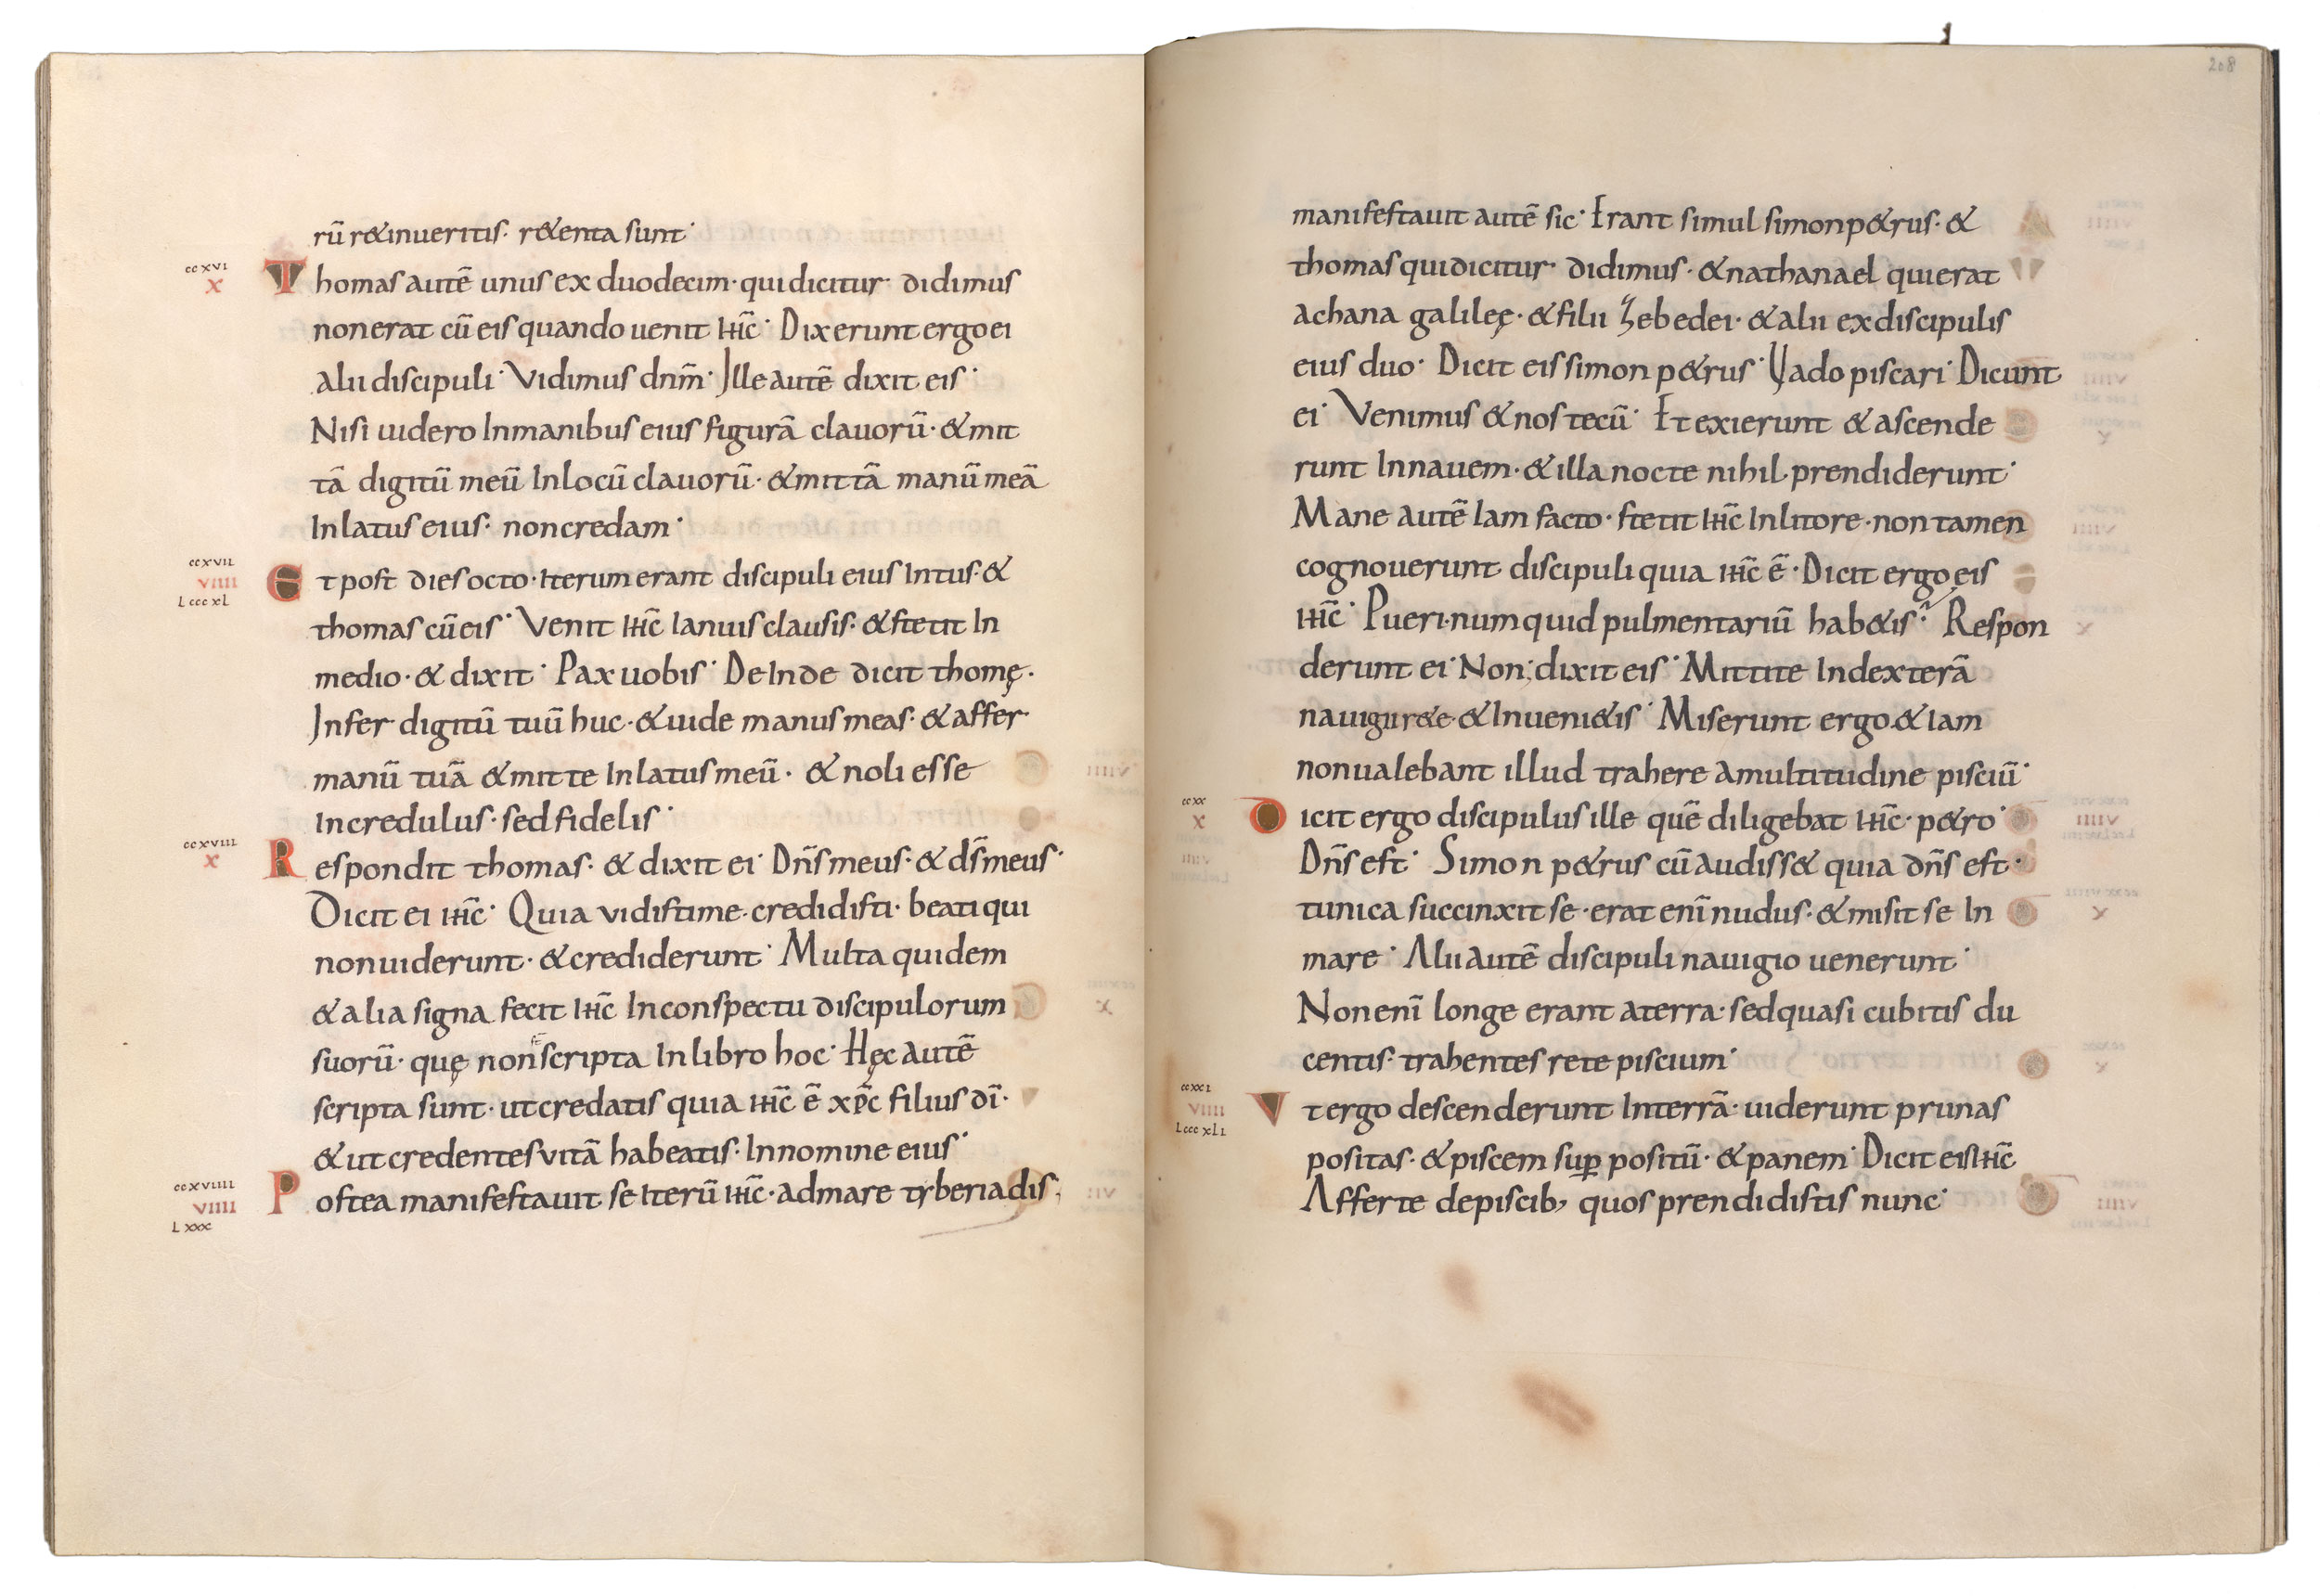 rū r&inueritis· r&enta sunt·
ccxvi
x
Thomas autē unus ex duodecim· qui dicitur didimus
non erat cū eis quando uenit ihc̄· Dixerunt ergo ei
alii discipuli· Vidimus dnm̄· Ille autē dixit eis·
Nisi uidero In manibus eius figurā clauorū· & mit
tā digitū meū In locū clauorū· & mittā manū meā
In latus eius· non credam·
ccxvii
viiii
Lcccxl
Et post dies octo· Iterum erant discipuli eius Intus· &
thomas cū eis· Venit ihc̄ Ianuis clausis· & stetit In
medio· & dixit· Pax uobis· DeInde dicit thomę·
Infer digitū tuū huc· & uide manus meas· & affer
manū tuā & mitte In latus meū· & noli esse
Incredulus· sed fidelis·
ccxviii
x
Respondit thomas· & dixit ei· Dn̄s meus· & ds̄ meus·
Dicit ei ihc̄· Quia vidisti me· credidisti· beati qui
non uiderunt· & crediderunt· Multa quidem
& alia signa fecit ihc̄ In conspectu discipulorum
suorū· quę non s̄ scripta In libro hoc· Hęc autē
scripta sunt· ut credatis quia ihc̄ ē xpc̄ filius dī·
& ut credentes vitā habeatis· In nomine eius·
ccxviiii
viiii
Lxxx
Postea manifestauit se Iterū ihc̄· ad mare tyberiadis;
208
manifestauit autē sic· Erant simul simon p&rus· &
thomas qui dicitur· didimus· & nathanael qui erat
a chana galileę· & filii Zebedei· & alii ex discipulis
eius duo· Dicit eis simon p&rus· Vado piscari· Dicunt
ei· Venimus & nos tecū· Et exierunt & ascende
runt In nauem· & illa nocte nihil prendiderunt·
Mane autē Iam facto· stetit ihc̄ In litore· non tamen
cognouerunt discipuli quia ihc̄ ē· Dicit ergo eis
ihc̄· Pueri· numquid pulmentariū hab&is· Respon
derunt ei· Non; dixit eis· Mittite In dexterā
nauigii r&e· & Inueni&is· Miserunt ergo· & Iam
non ualebant illud trahere a multitudine pisciū·
ccxx
x
Dicit ergo discipulus ille quē diligebat ihc̄· p&ro·
Dn̄s est· Simon p&rus cū audiss& quia dn̄s est·
tunica succinxit se· erat enī nudus· & misit se In
mare· Alii autē discipuli nauigio uenerunt·
Non enī longe erant a terra· sed quasi cubitis du
centis· trahentes rete piscium·
ccxxi
viiii
Lcccxli
Vt ergo descenderunt In terrā· uiderunt prunas
positas· & piscem sup̄ positū· & panem· Dicit eis ihc̄
Afferte de piscib; quos prendidistis nunc·